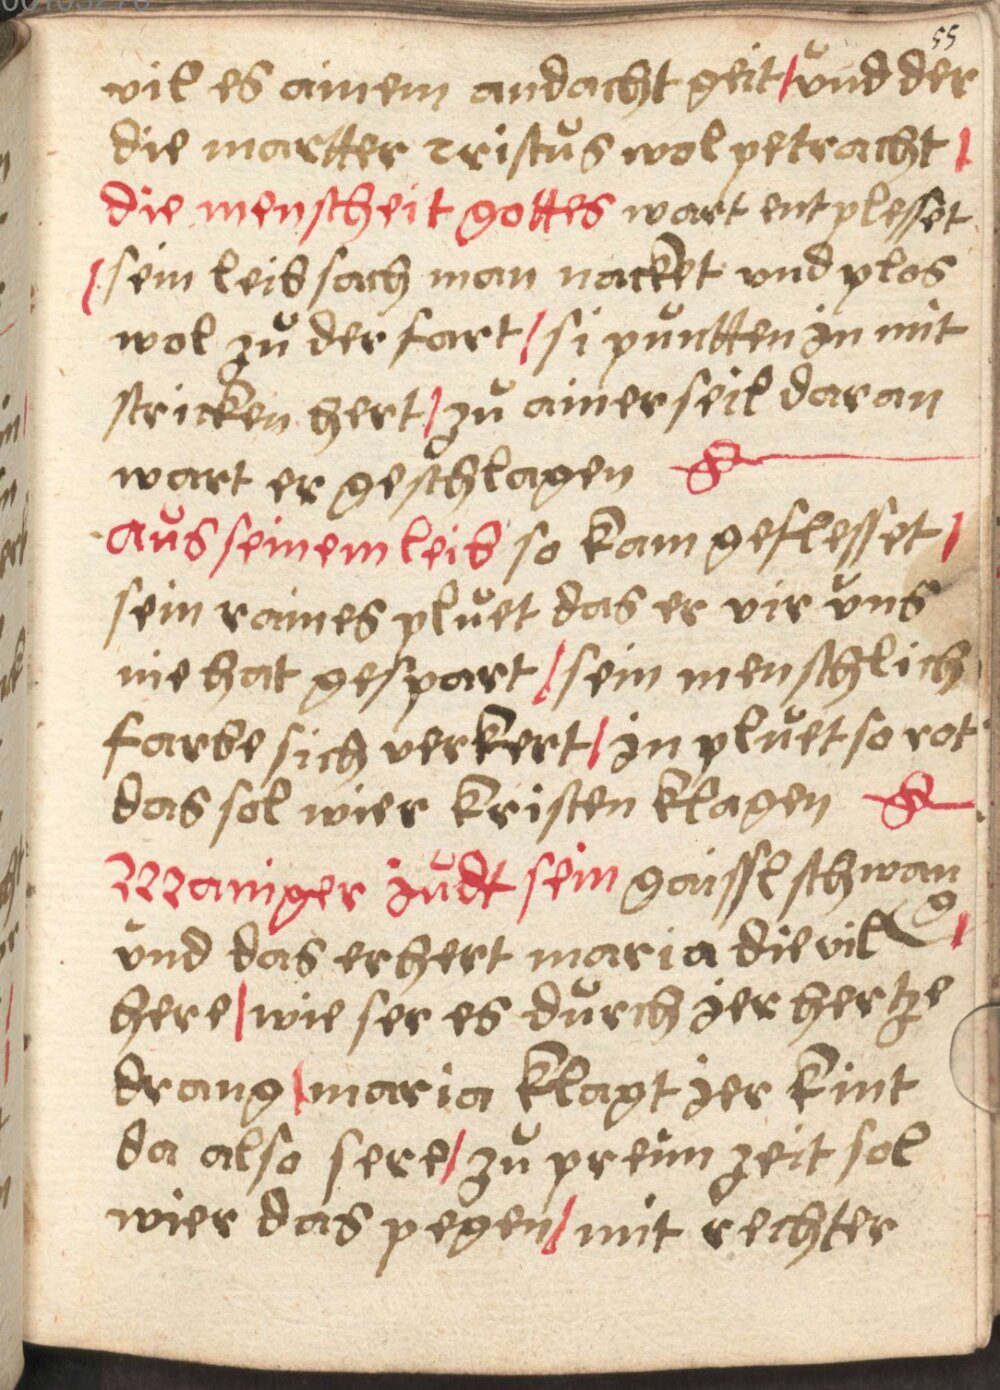 55
vil es ainem andacht geit / vnd der
die martter cristus wol petracht /
die menscheit gottes wart entplesset
/ sein leib sach man nacket vnd plos
wol zu der fart / si puntten jn mit
stricken hert / zu ainer seil daran
wart er geschlagen
aus seinem leib so kam geflesset /
sein raines pluet das er vir vns
nie hat gespart / sein menschlich
farbe sich verkert / jn pluet so rot
das sol wier kristen klagen
Maniger judt sein gaissl schwang
vnd das erhert maria die vil /
here / wie ser es durch jer hertze
drang / maria klagt jer kint
da also sere / zu preim zeit sol
wier das pegen / mit rechter